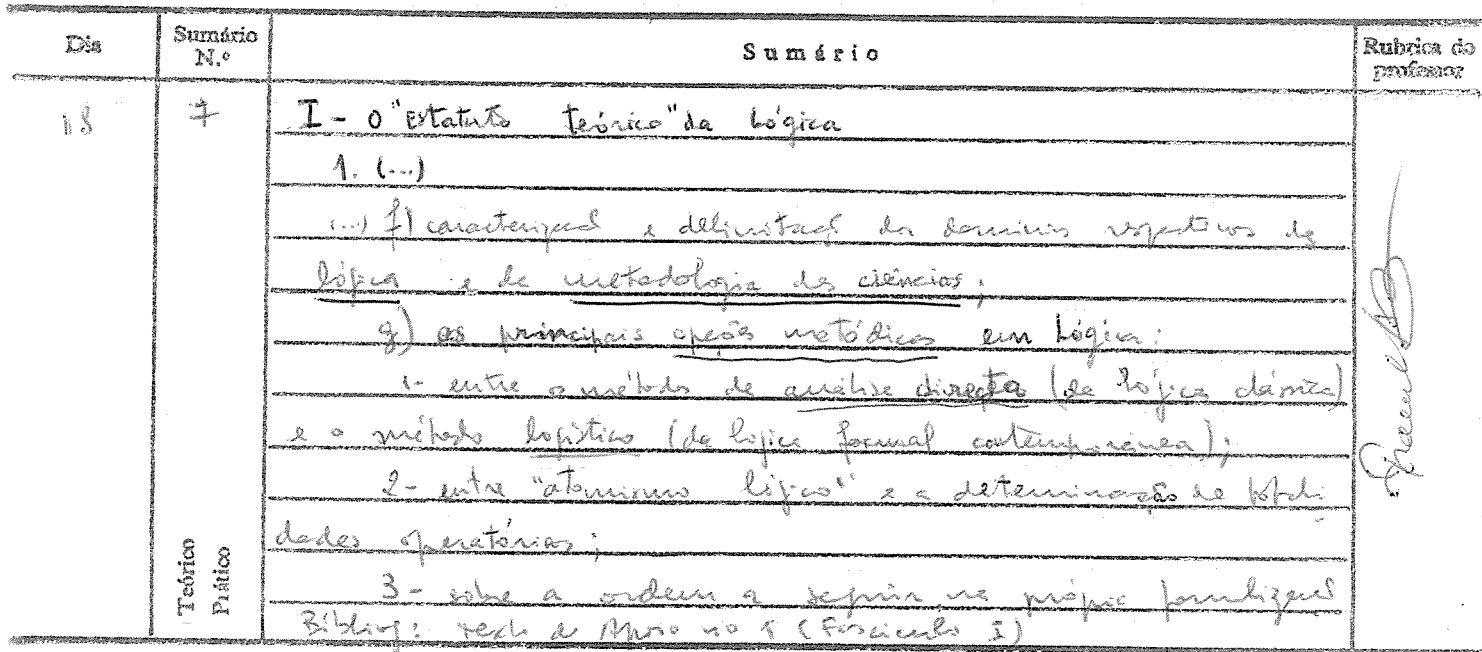 Dia Sumário N.º Sumário Rubrica do professor
18 7 I - O "Estatuto teórico" da Lógica
1. (...)
(...) f) caracterizaçã e delimitaçã dos domínios respectivos da
lógica e da metodologia das ciências;
g) as principais opções metódicas em Lógica:
1- entre o método de análise directa (da lógica clássica)
e o método logístico (da lógica formal contemporânea);
2- entre "atomismo lógico" e a determinação de totali
dades operatórias;
3- sobre a ordem a seguir na própria formalizaçã
Bibliog: texto de Apoio nº (Fascículo I)
Teórico
Prático